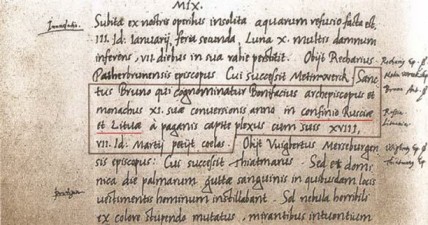 MIX.
Subita ex nostris operibus insolita aquarum refusio facta est
III. Id: Ianuarij, feria secunda, Luna X. multis damnum
inferens, VII diebus in sua rabie perstitit. Obijt Recharius
Patherbrunensis episcopus Cui successit Metinwerck. Sanc
tus Bruno qui cognominatur Bonifacius archepiscopus et
monachus XI. suæ conversionis anno in confinio Rusciæ
et Lituæ à paganis capite plexus cum suis XVIII,
VII. Id: Martij petijt coelos. Obijt Wigbertus Merseburgen
sis episcopus: Cui successit Thiatmarus. Sed et domi
nica die palmarum guttæ sanguinis in quibusdam locis
vestimentis hominum instillabant. Sol nebula horribili
ex colore stupendo mutatus, mirantibus intuentium
Inundatio.
Bruno
Russia
Lituania